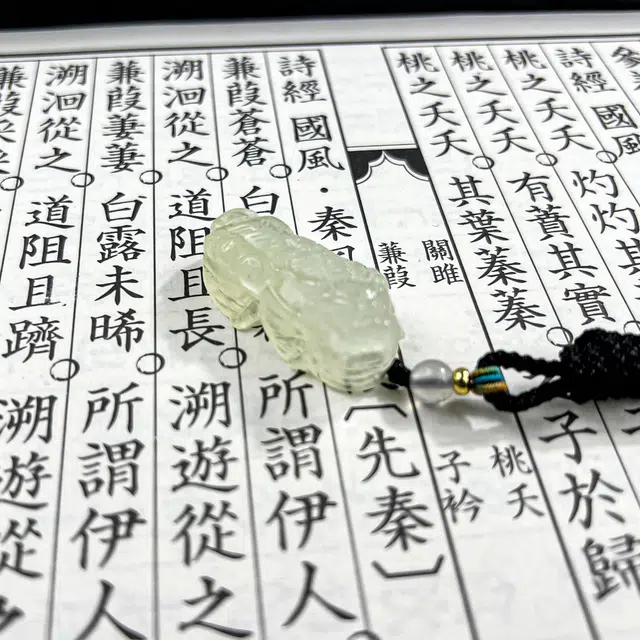 詩經 國風
桃之夭夭。灼灼其
桃之夭夭。有蕡其實。
桃之夭夭。其葉蓁蓁。子於歸
關雎 桃夭
蒹葭 子衿
詩經 國風・秦〔先秦〕
蒹葭蒼蒼。白 所謂伊人
溯洄從之。道阻且長。溯遊從之
蒹葭萋萋。白露未晞。所謂伊人
溯洄從之。道阻且躋。溯遊從之
蒹葭采